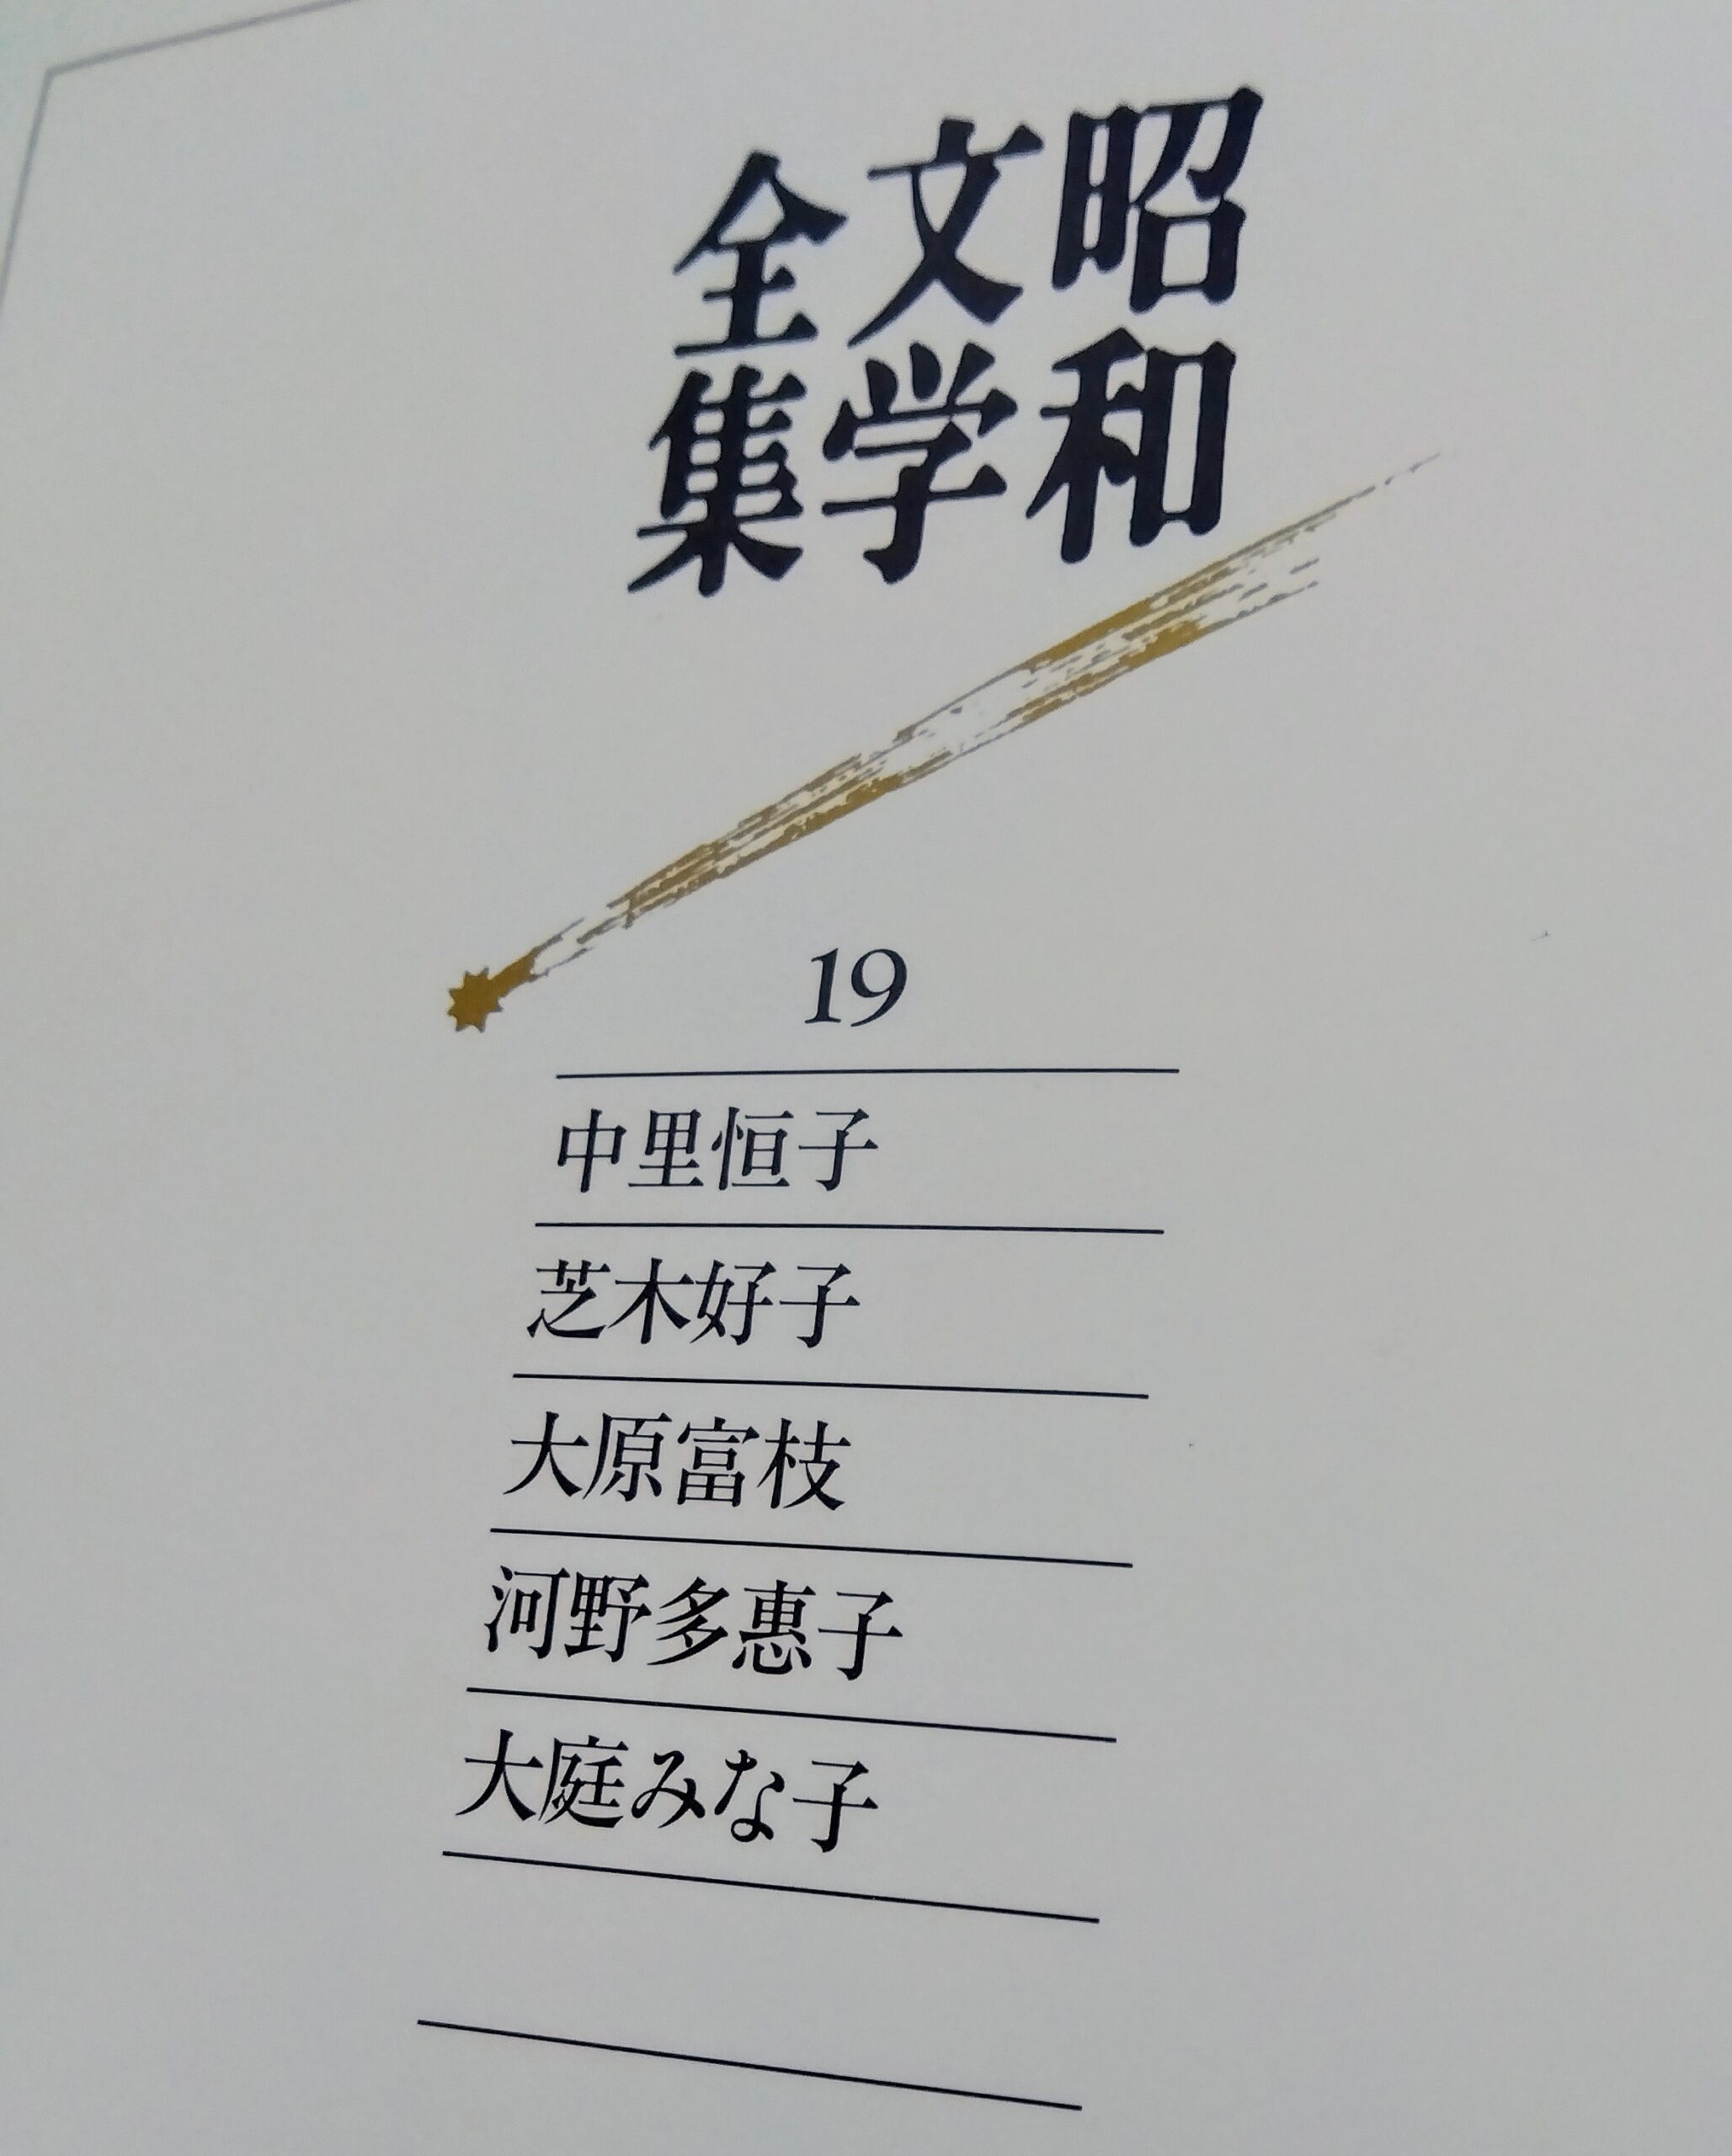 昭和
文学
全集
19
中里恒子
芝木好子
大原富枝
河野多惠子
大庭みな子